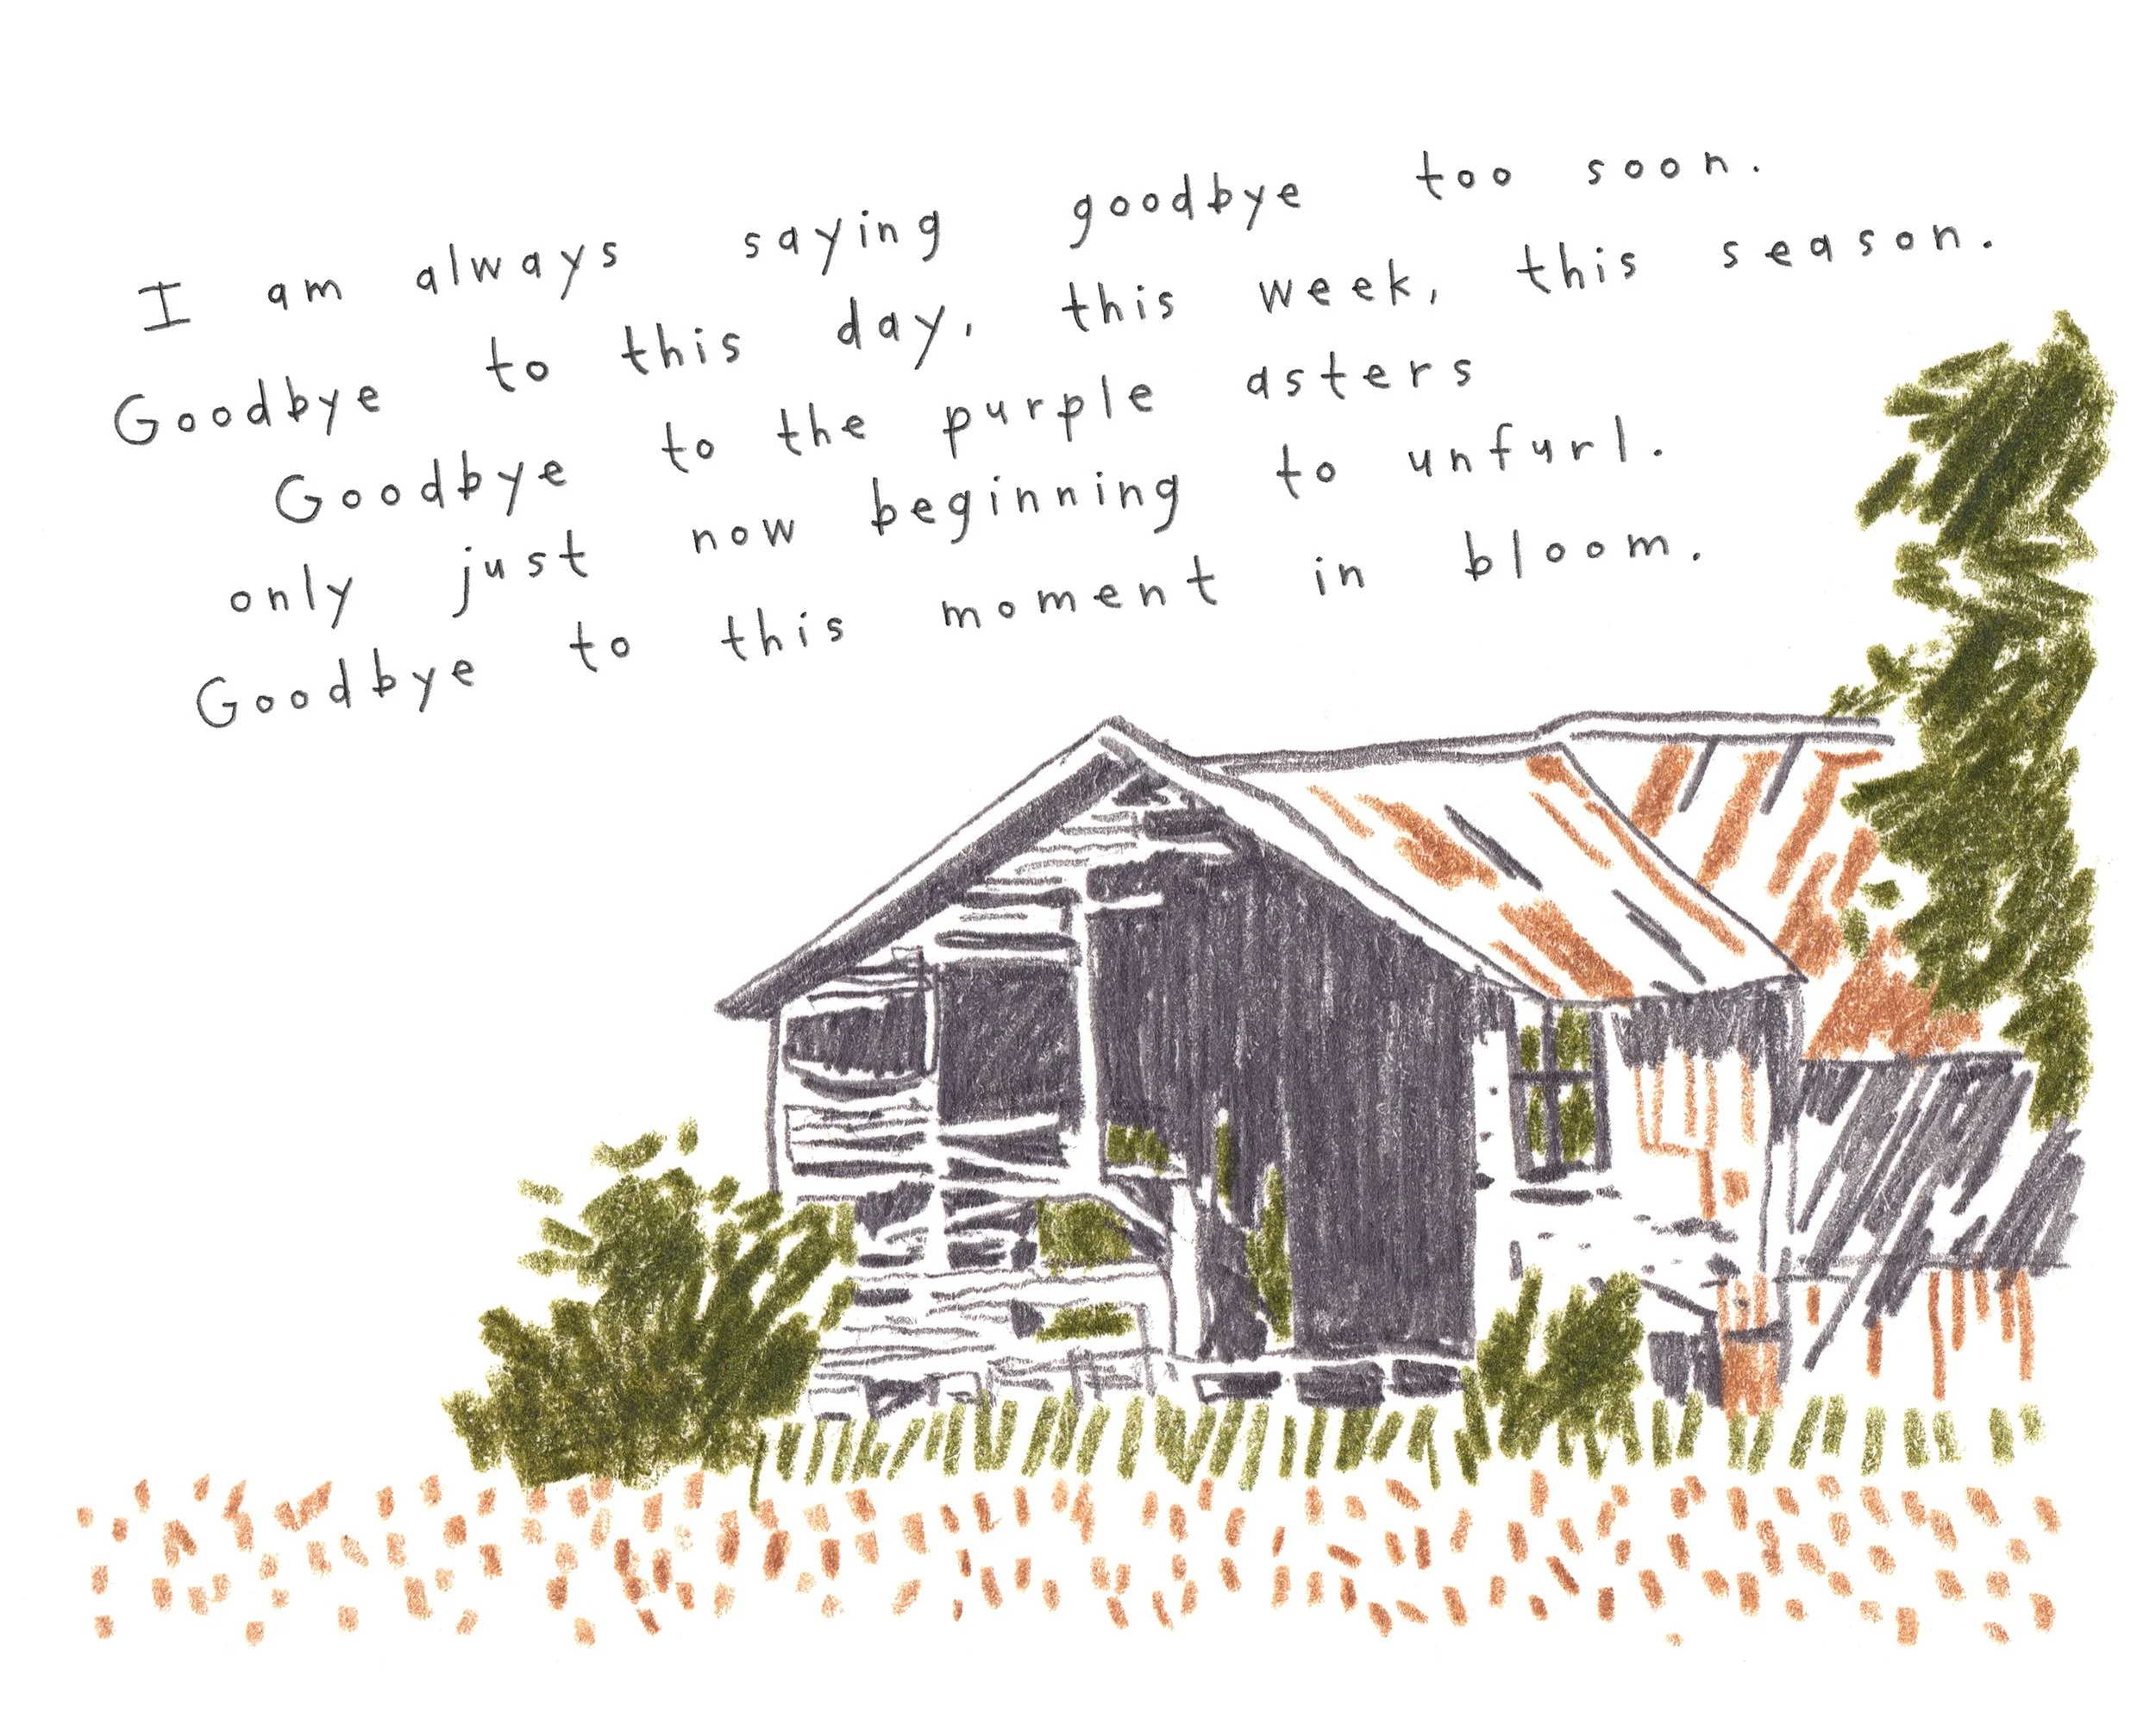 I am always saying goodbye too soon.
Goodbye to this day, this week, this season.
Goodbye to the purple asters
only just now beginning to unfurl.
Goodbye to this moment in bloom.